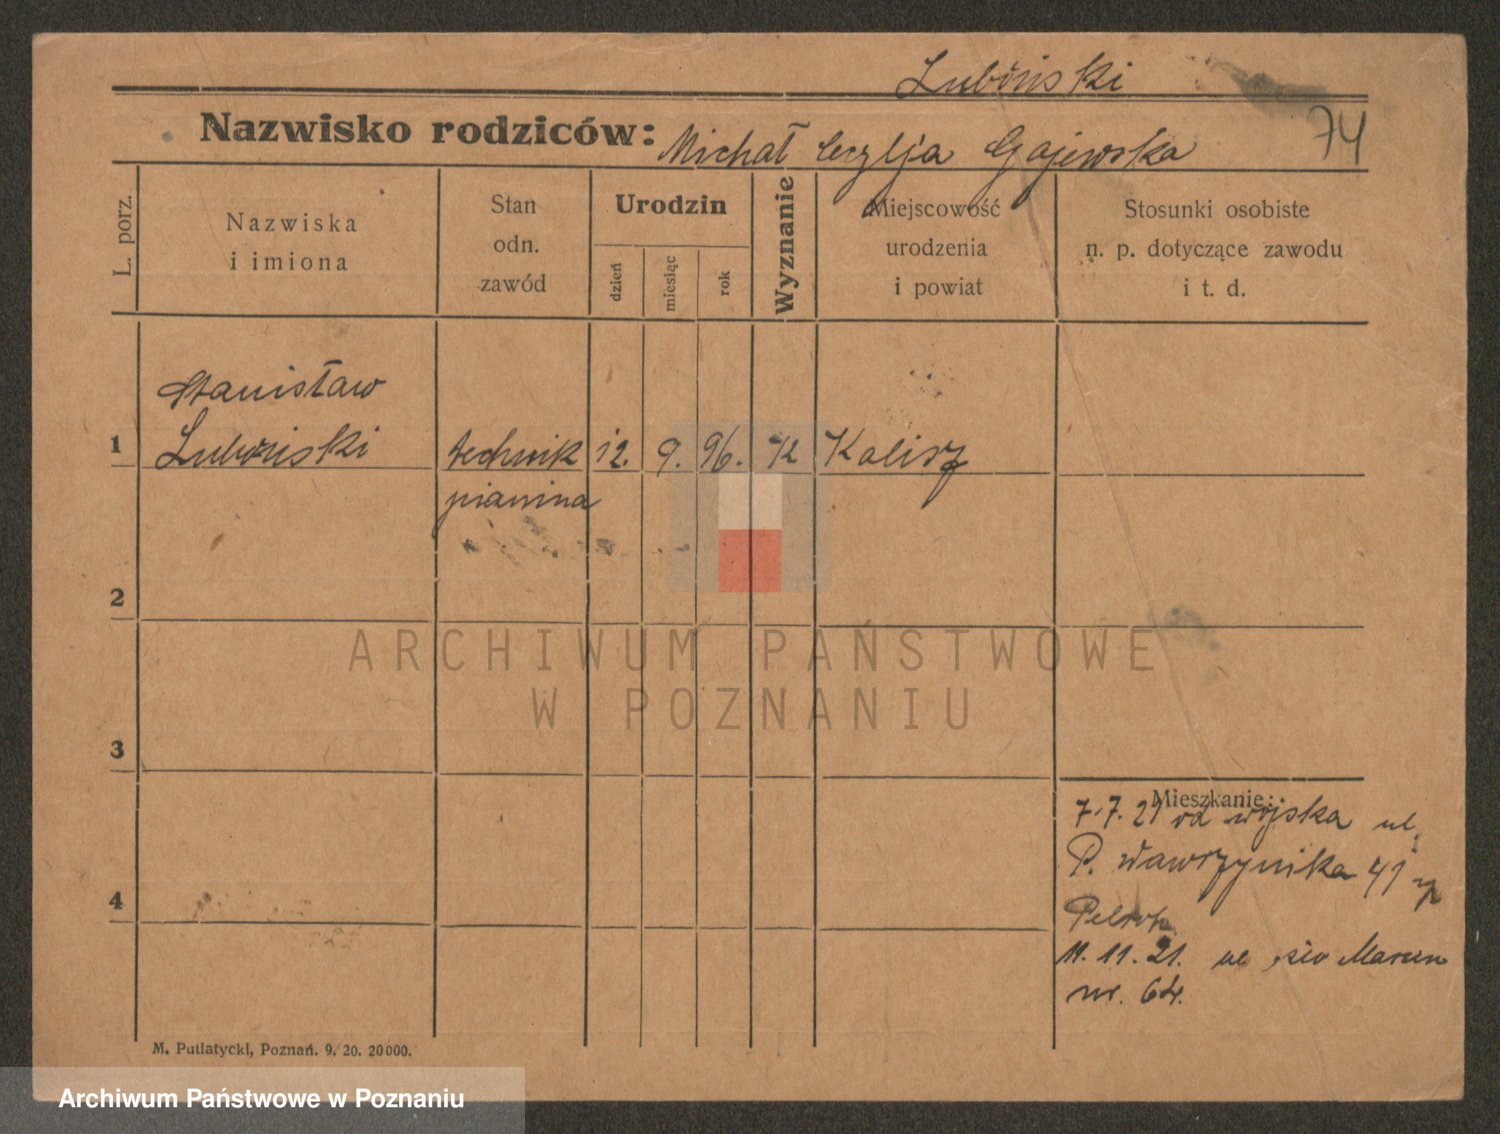 Luboński
Nazwisko rodziców: Michał Cecylja Gajewska
74
L. porz.
Nazwiska
i imiona
Stan
odn.
zawód
Urodzin
dzień
miesiąc
rok
Wyznanie
Miejscowość
urodzenia
i powiat
Stosunki osobiste
n. p. dotyczące zawodu
i t. d.
Stanisław
1 Luboński technik 12. 9. 96. K Kalisz
pianina
2
ARCHIWUM PAŃSTWOWE
W POZNANIU
3
Mieszkanie:
7.7.21 od wojska ul.
P. Wawrzynika 41
4
11.11.21. ul św Marcin
nr. 64.
M. Putiatycki, Poznań. 9. 20. 20000.
Archiwum Państwowe w Poznaniu